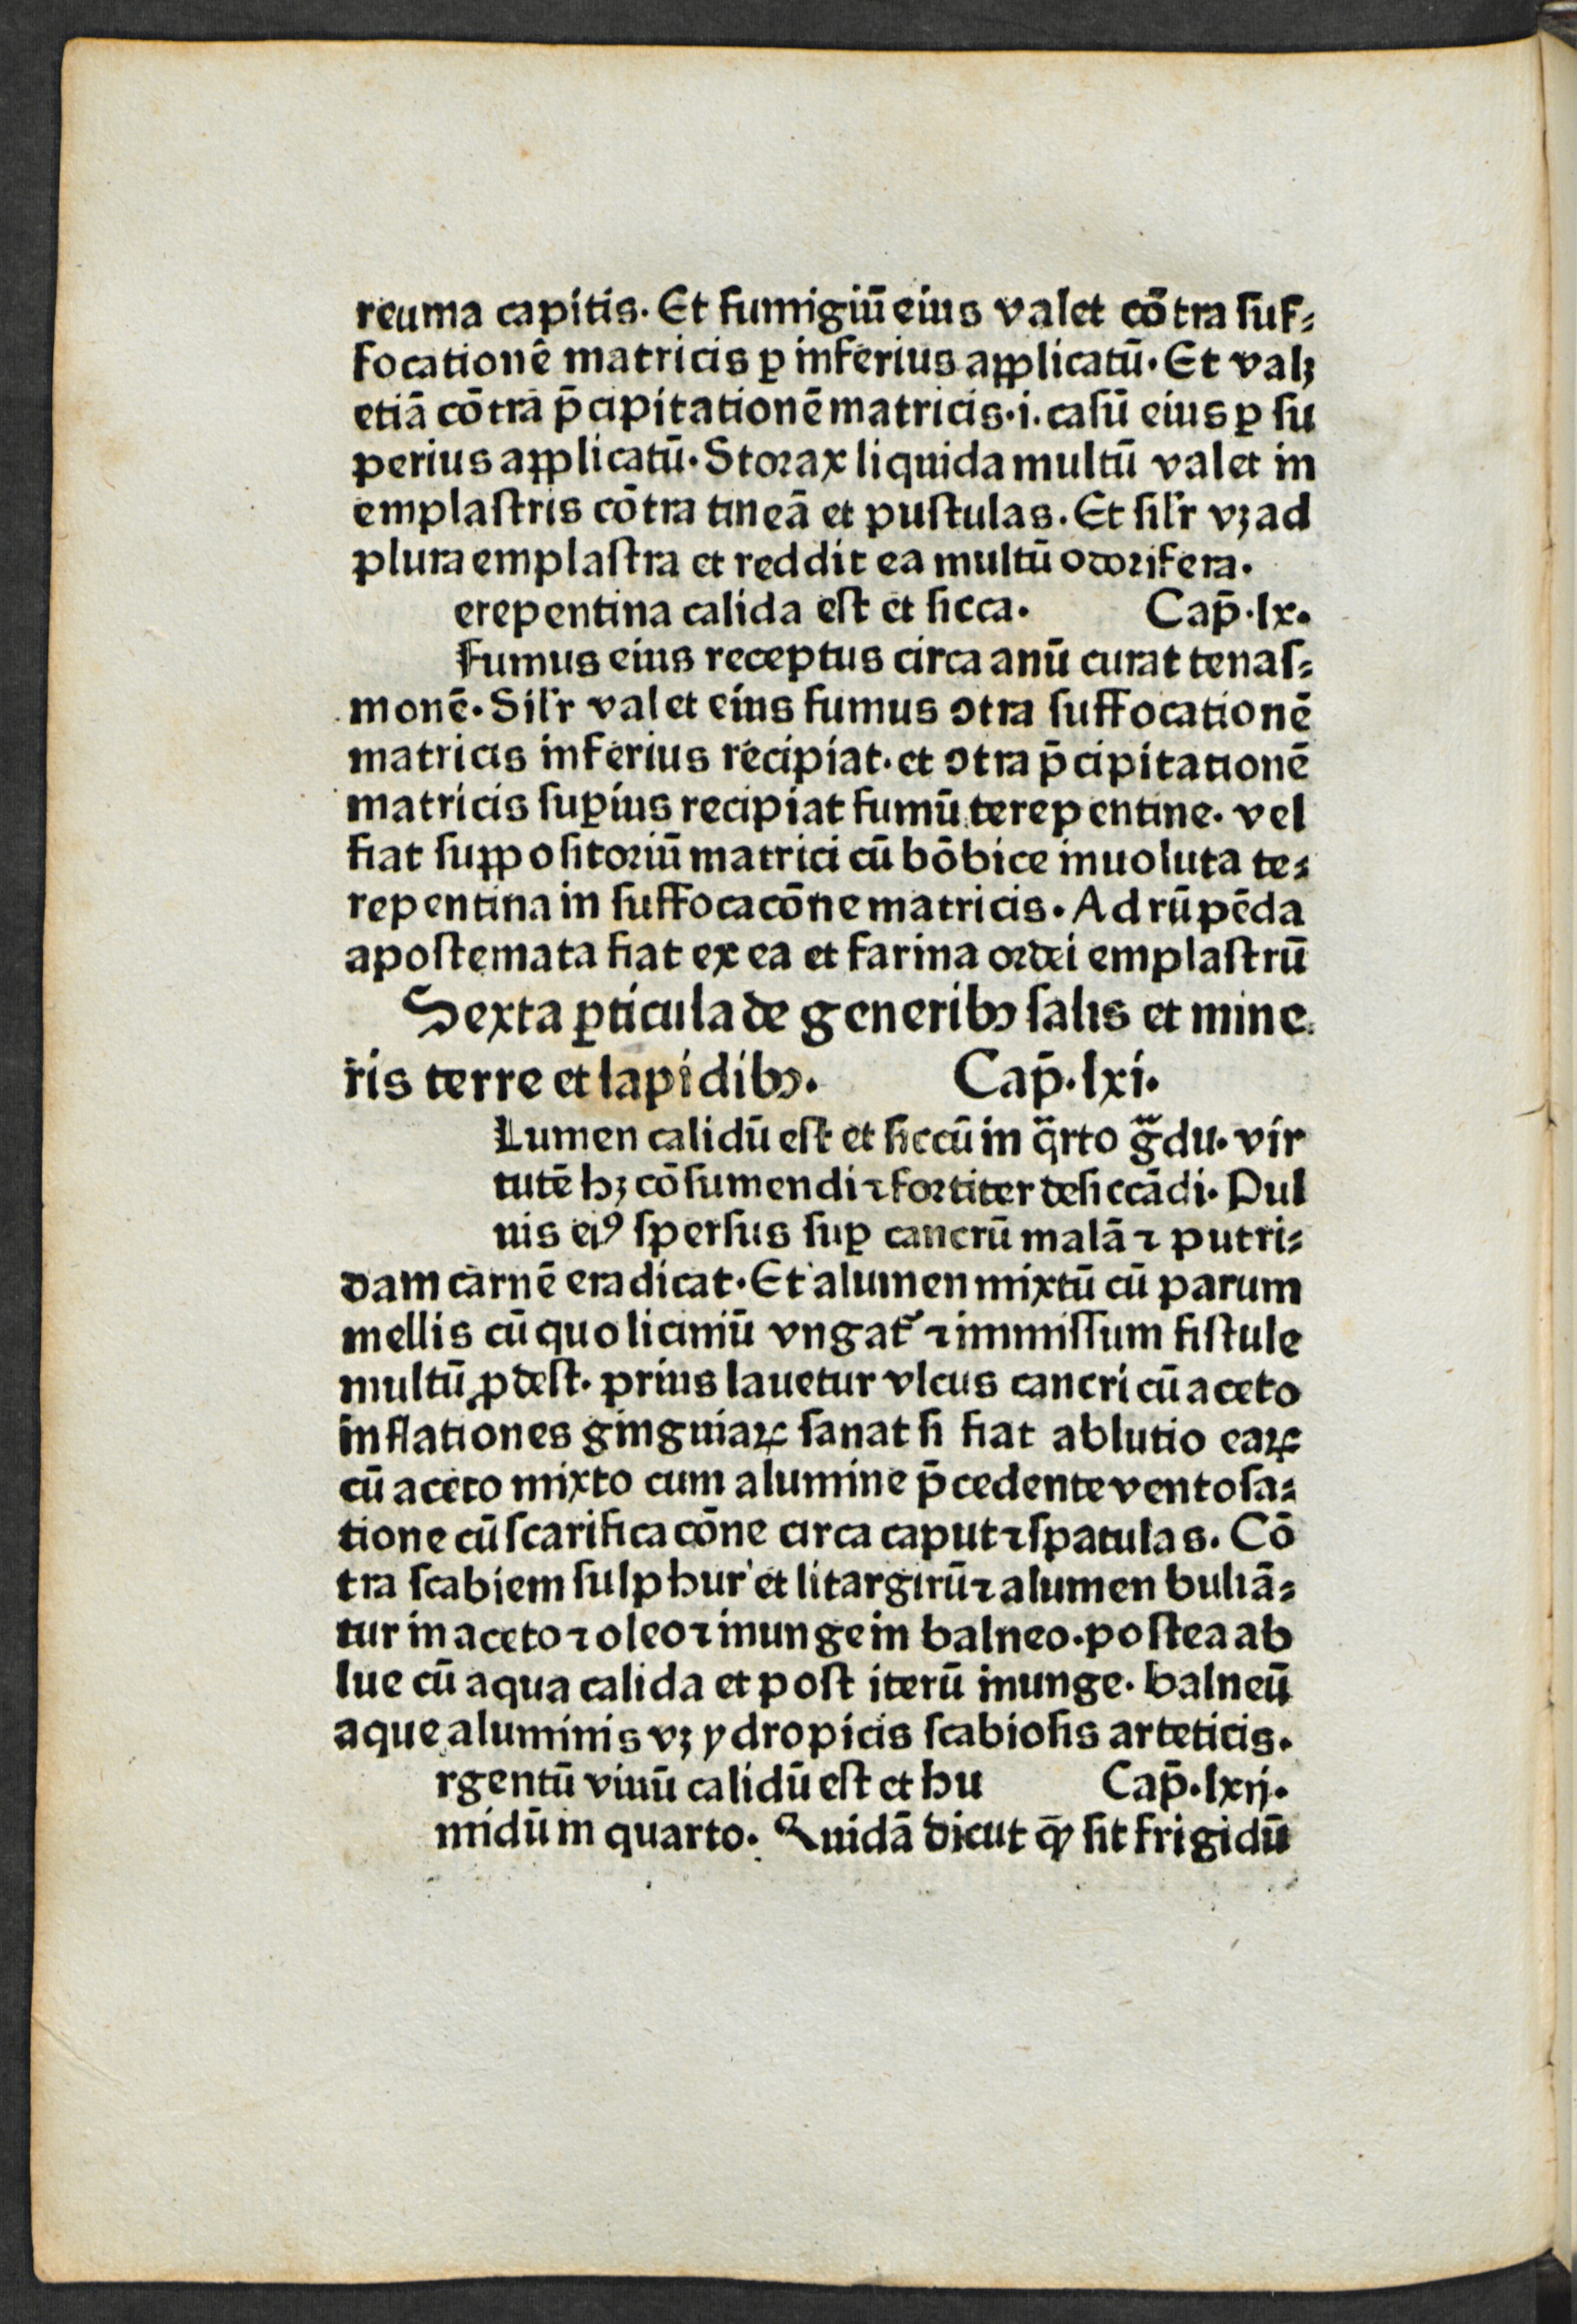 reuma capitis. Et fumigiū eius valet cōtra ſuf⸗
focationē matricis ꝑ inferius applicatū. Et valꝫ
etiā cōtra p̄cipitationē matricis .i. caſū eius ꝑ ſu
perius applicatū. Storax liquida multū valet in
emplaſtris cōtra tineā et puſtulas. Et ſil'r vꝫ ad
plura emplaſtra et reddit ea multū odorifera.
erepentina calida eſt et ſicca. Cap̄. lx.
Fumus eius receptus circa anū curat tenaſ⸗
monē. Sil'r valet eius fumus ↄtra ſuffocationē
matricis inferius recipiat. et ↄtra p̄cipitationē
matricis ſuꝑius recipiat fumū terepentine. vel
fiat ſuppoſitoriū matrici cū bōbice inuoluta te⸗
repentina in ſuffocacōne matricis. Ad rūpēda
apoſtemata fiat ex ea et farina ordei emplaſtrū
Sexta ꝑticula de generibꝰ ſalis et mine
ris terre et lapidibꝰ. Cap̄. lxi.
Lumen calidū eſt et ſiccū in q̈rto g̈du. vir
tutē hꝫ cōſumendi ⁊ fortiter deſiccādi. Pul
uis eiꝰ ſperſus ſuꝑ cancrū malā ⁊ putri⸗
dam carnē eradicat. Et alumen mixtū cū parum
mellis cū quo liciniū vngat᷑ ⁊ immiſſum fiſtule
multū ꝓdeſt. prius lauetur vlcus cancri cū aceto
inflationes ginguiaꝝ ſanat ſi fiat ablutio eaꝝ
cū aceto mixto cum alumine p̄cedente ventoſa⸗
tione cū ſcarificacōne circa caput ⁊ ſpatulas. Cō
tra ſcabiem ſulphur et litargirū ⁊ alumen buliā⸗
tur in aceto ⁊ oleo ⁊ inunge in balneo. poſtea ab
lue cū aqua calida et poſt iterū inunge. balneū
aque aluminis vꝫ ydropicis ſcabioſis arteticis.
rgentū viuū calidū eſt et hu Cap̄. lxij.
midū in quarto. Quidā dicut ꝙ ſit frigidū